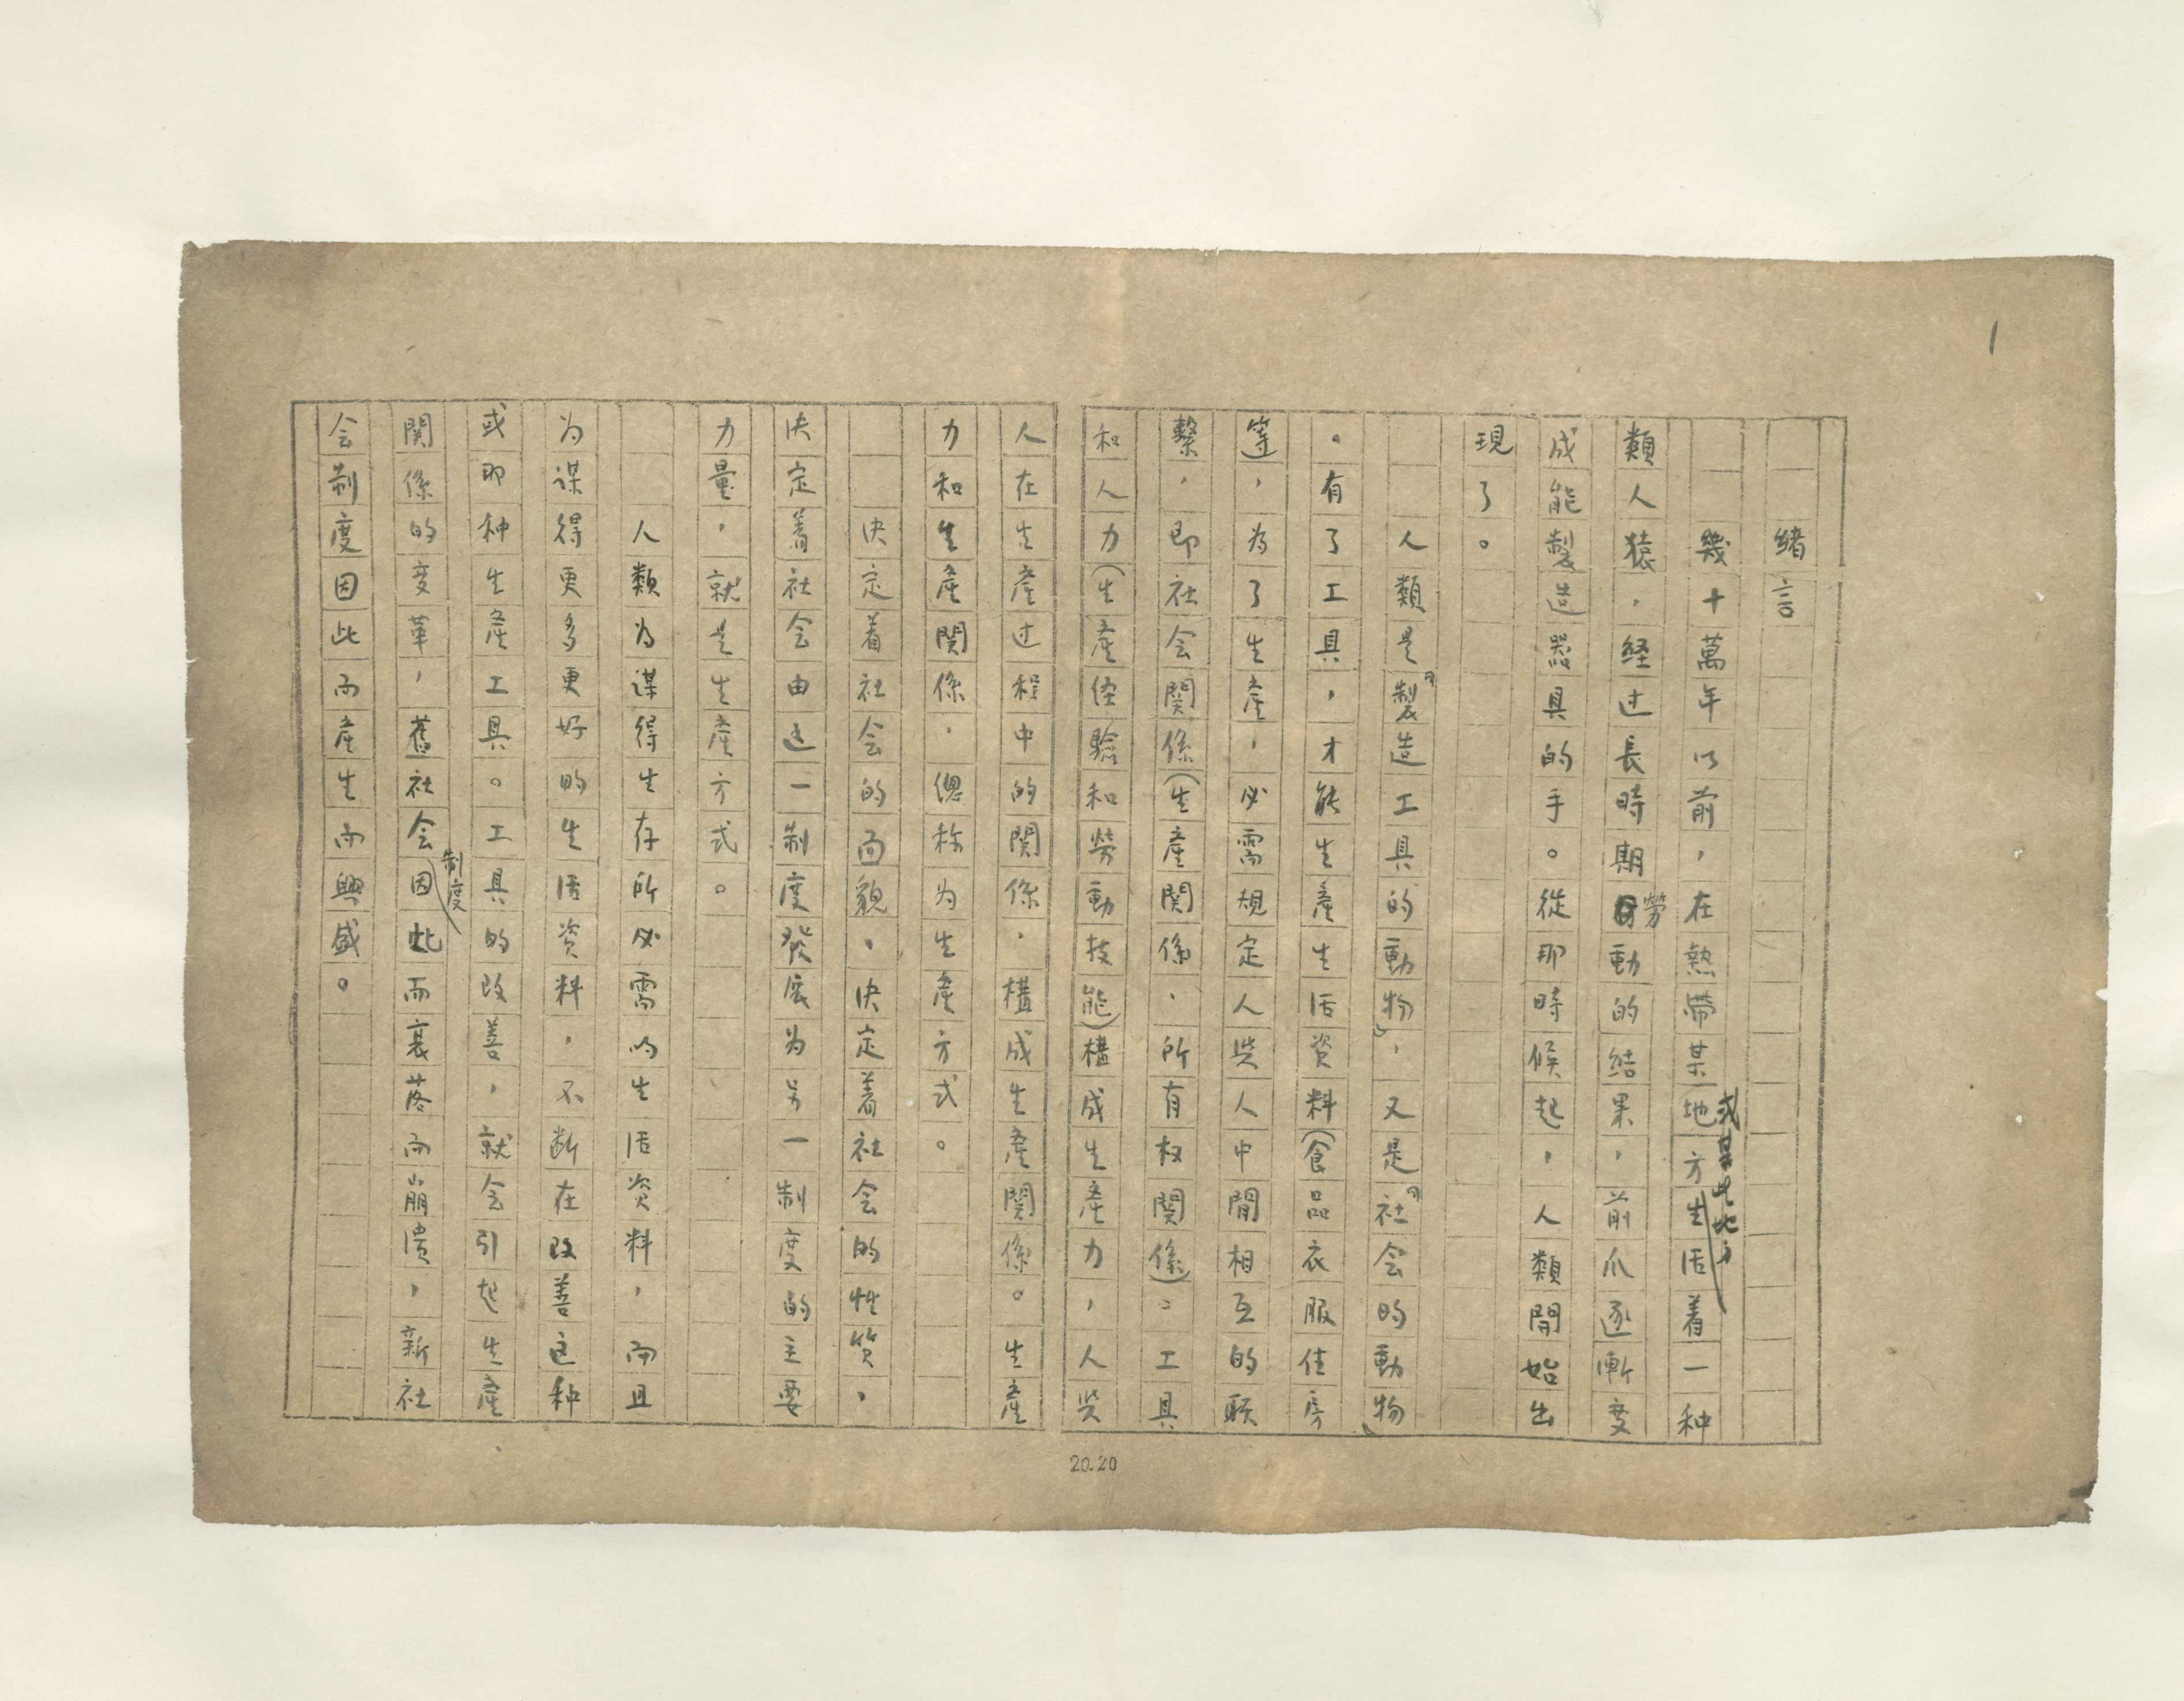 1
緒言
幾十萬年以前，在熱帶某地方或某些地方生活着一種
類人猿，経过長時期勞動的结果，前爪逐漸变
成能製造器具的手。從那時候起，人類開始出
現了。
人類是「製造工具的動物」，又是「社会的動物」
。有了工具，才能生產生活資料（食品衣服住房
等），为了生產，必需規定人与人中間相互的联
繫，即社会関係（生產関係、所有权関係）。工具
和人力（生產经驗和勞動技能）構成生產力，人与
人在生產过程中的関係，構成生產関係。生產
力和生產関係，總称为生產方式。
决定着社会的面貌，决定着社会的性質，
决定着社会由这一制度發展为另一制度的主要
力量，就是生產方式。
人類为谋得生存所必需的生活資料，而且
为谋得更多更好的生活資料，不断在改善这种
或那种生產工具。工具的改善，就会引起生產
関係的变革，舊社会制度因此而衰落而崩潰，新社
会制度因此而產生而興盛。
20.20